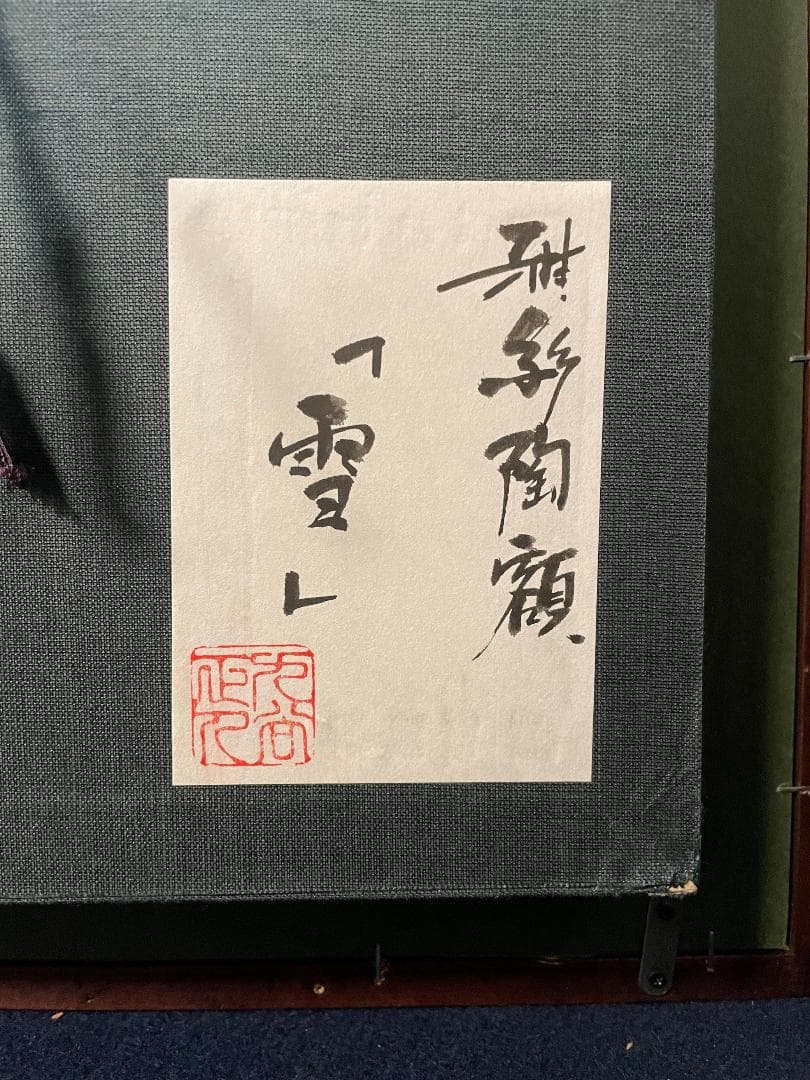 雅彩陶額
「雪」